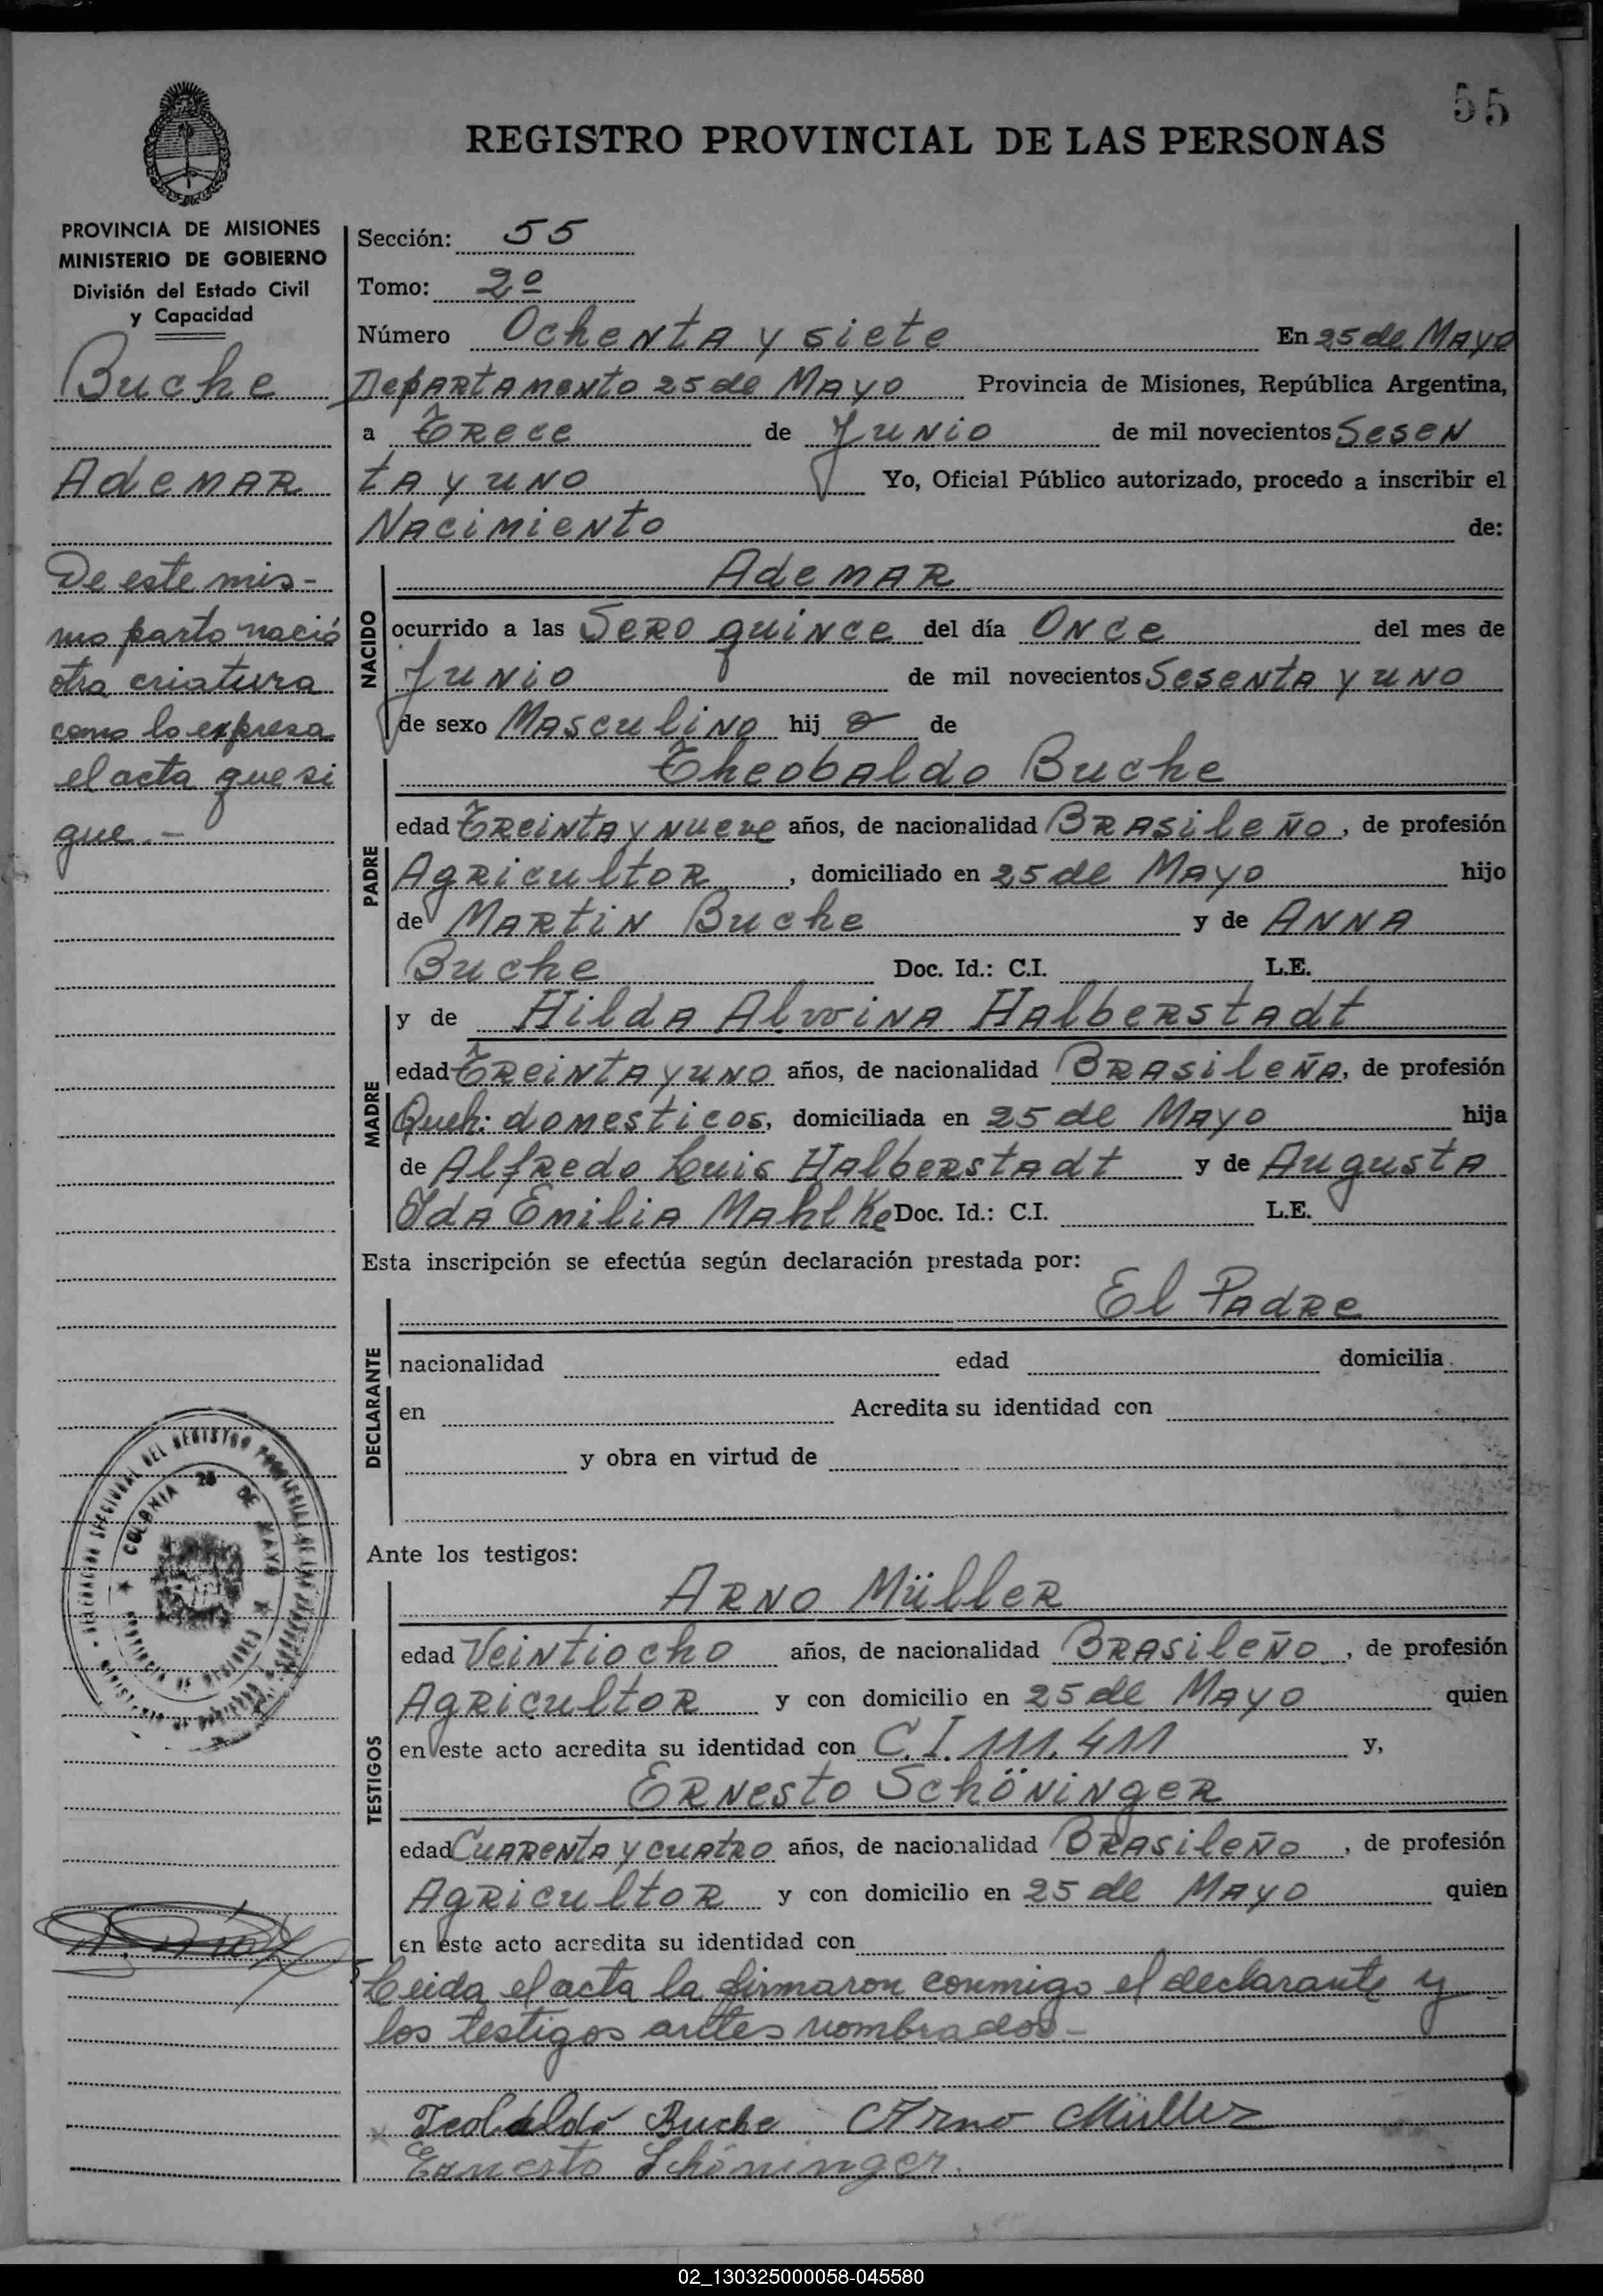 55
REGISTRO PROVINCIAL DE LAS PERSONAS
PROVINCIA DE MISIONES
MINISTERIO DE GOBIERNO
División del Estado Civil
y Capacidad
Buche
Ademar
De este mis-
mo parto nació
otra criatura
como lo expresa
el acta que si
gue.-
Sección: 55
Tomo: 2º
Número Ochenta y siete En 25 de Mayo
Departamento 25 de Mayo Provincia de Misiones, República Argentina,
a Trece de Junio de mil novecientos Sesen
ta y uno Yo, Oficial Público autorizado, procedo a inscribir el
Nacimiento de:
NACIDO
Ademar
ocurrido a las Sero quince del día Once del mes de
Junio de mil novecientos Sesenta y uno
de sexo Masculino hij o de
PADRE
Theobaldo Buche
edad Treinta y nueve años, de nacionalidad Brasileño, de profesión
Agricultor, domiciliado en 25 de Mayo hijo
de Martin Buche y de Anna
Buche Doc. Id.: C.I. L.E.
MADRE
y de Hilda Alwina Halberstadt
edad Treinta y uno años, de nacionalidad Brasileña, de profesión
Queh: domesticos, domiciliada en 25 de Mayo hija
de Alfredo Luis Halberstadt y de Augusta
Ida Emilia Mahlke Doc. Id.: C.I. L.E.
Esta inscripción se efectúa según declaración prestada por:
El Padre
DECLARANTE
nacionalidad edad domicilia
en Acredita su identidad con
y obra en virtud de
Ante los testigos:
TESTIGOS
Arno Müller
edad Veintiocho años, de nacionalidad Brasileño, de profesión
Agricultor y con domicilio en 25 de Mayo quien
en este acto acredita su identidad con C.I. 111.411 y,
Ernesto Schöninger
edad Cuarenta y cuatro años, de nacionalidad Brasileño, de profesión
Agricultor y con domicilio en 25 de Mayo quien
en este acto acredita su identidad con
Leida el acta la firmaron conmigo el declarante y
los testigos antes nombrados-
Teobaldo Buche Arno Müller
Ernesto Schöninger
COLONIA 25 DE MAYO
PROVINCIA DE MISIONES
02_130325000058-045580